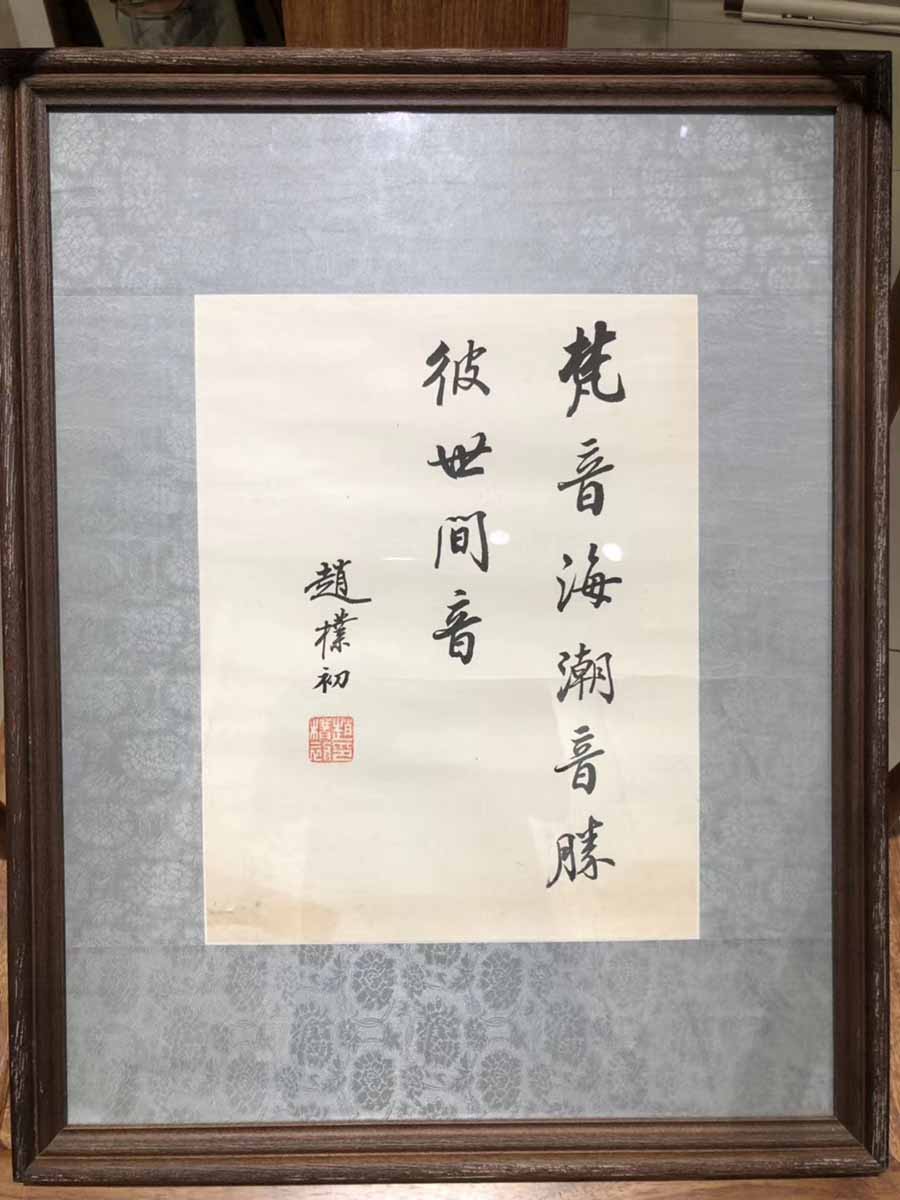 梵音海潮音勝
彼世間音
趙樸初
趙樸初印